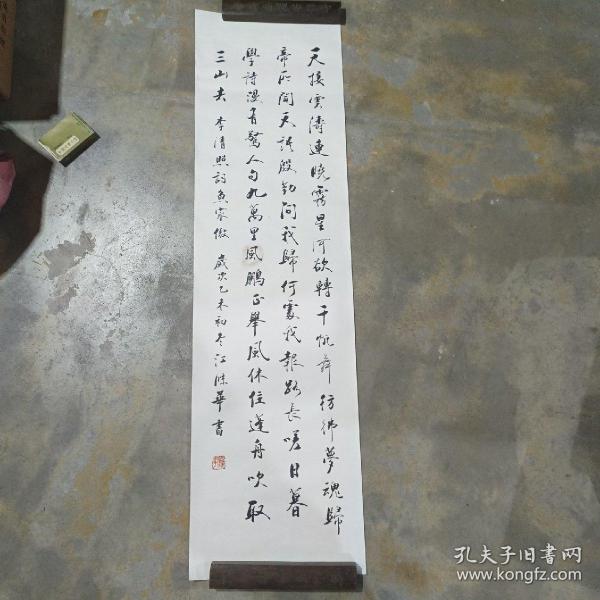 天接雲濤連曉霧星河欲轉千帆舞彷彿夢魂歸
帝所聞天語殷勤問我歸何處我報路長嗟日暮
學詩漫有驚人句九萬里風鵬正舉風休住蓬舟吹取
三山去 李清照詞漁家傲 歲次乙未初冬江 華書
孔夫子旧书网
www.kongfz.com